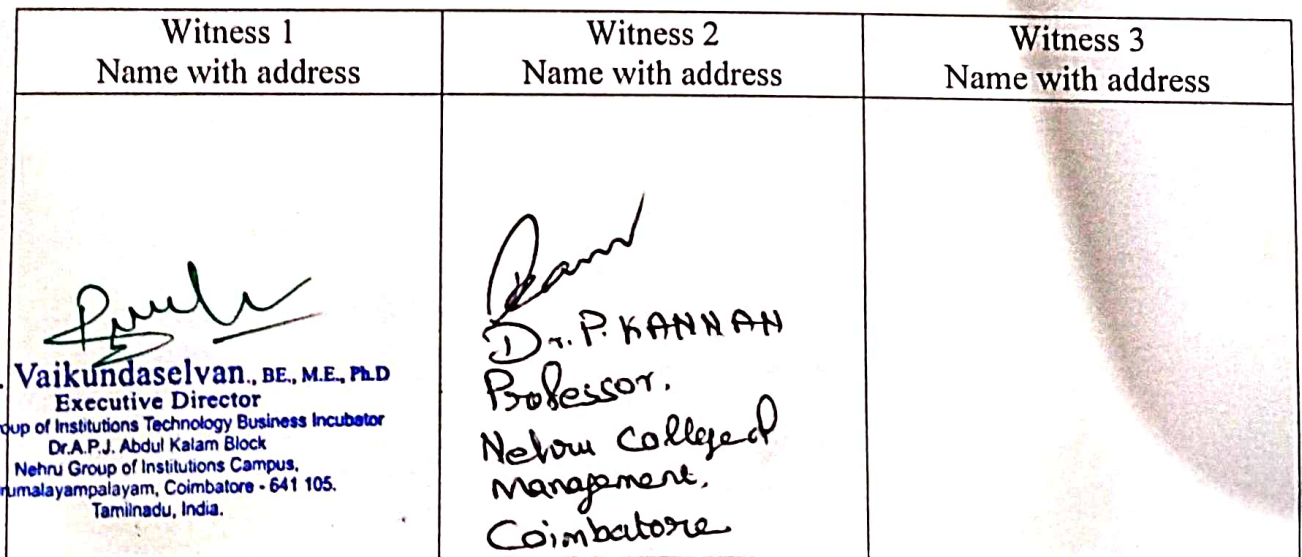 Witness 1
Name with address
Witness 2
Name with address
Witness 3
Name with address
. Vaikundaselvan., BE., M.E., Ph.D
Executive Director
oup of Institutions Technology Business Incubator
Dr.A.P.J. Abdul Kalam Block
Nehru Group of Institutions Campus,
rumalayampalayam, Coimbatore - 641 105.
Tamilnadu, India.
Dr. P. KANNAN
Professor.
Nehru College of
Management.
Coimbatore